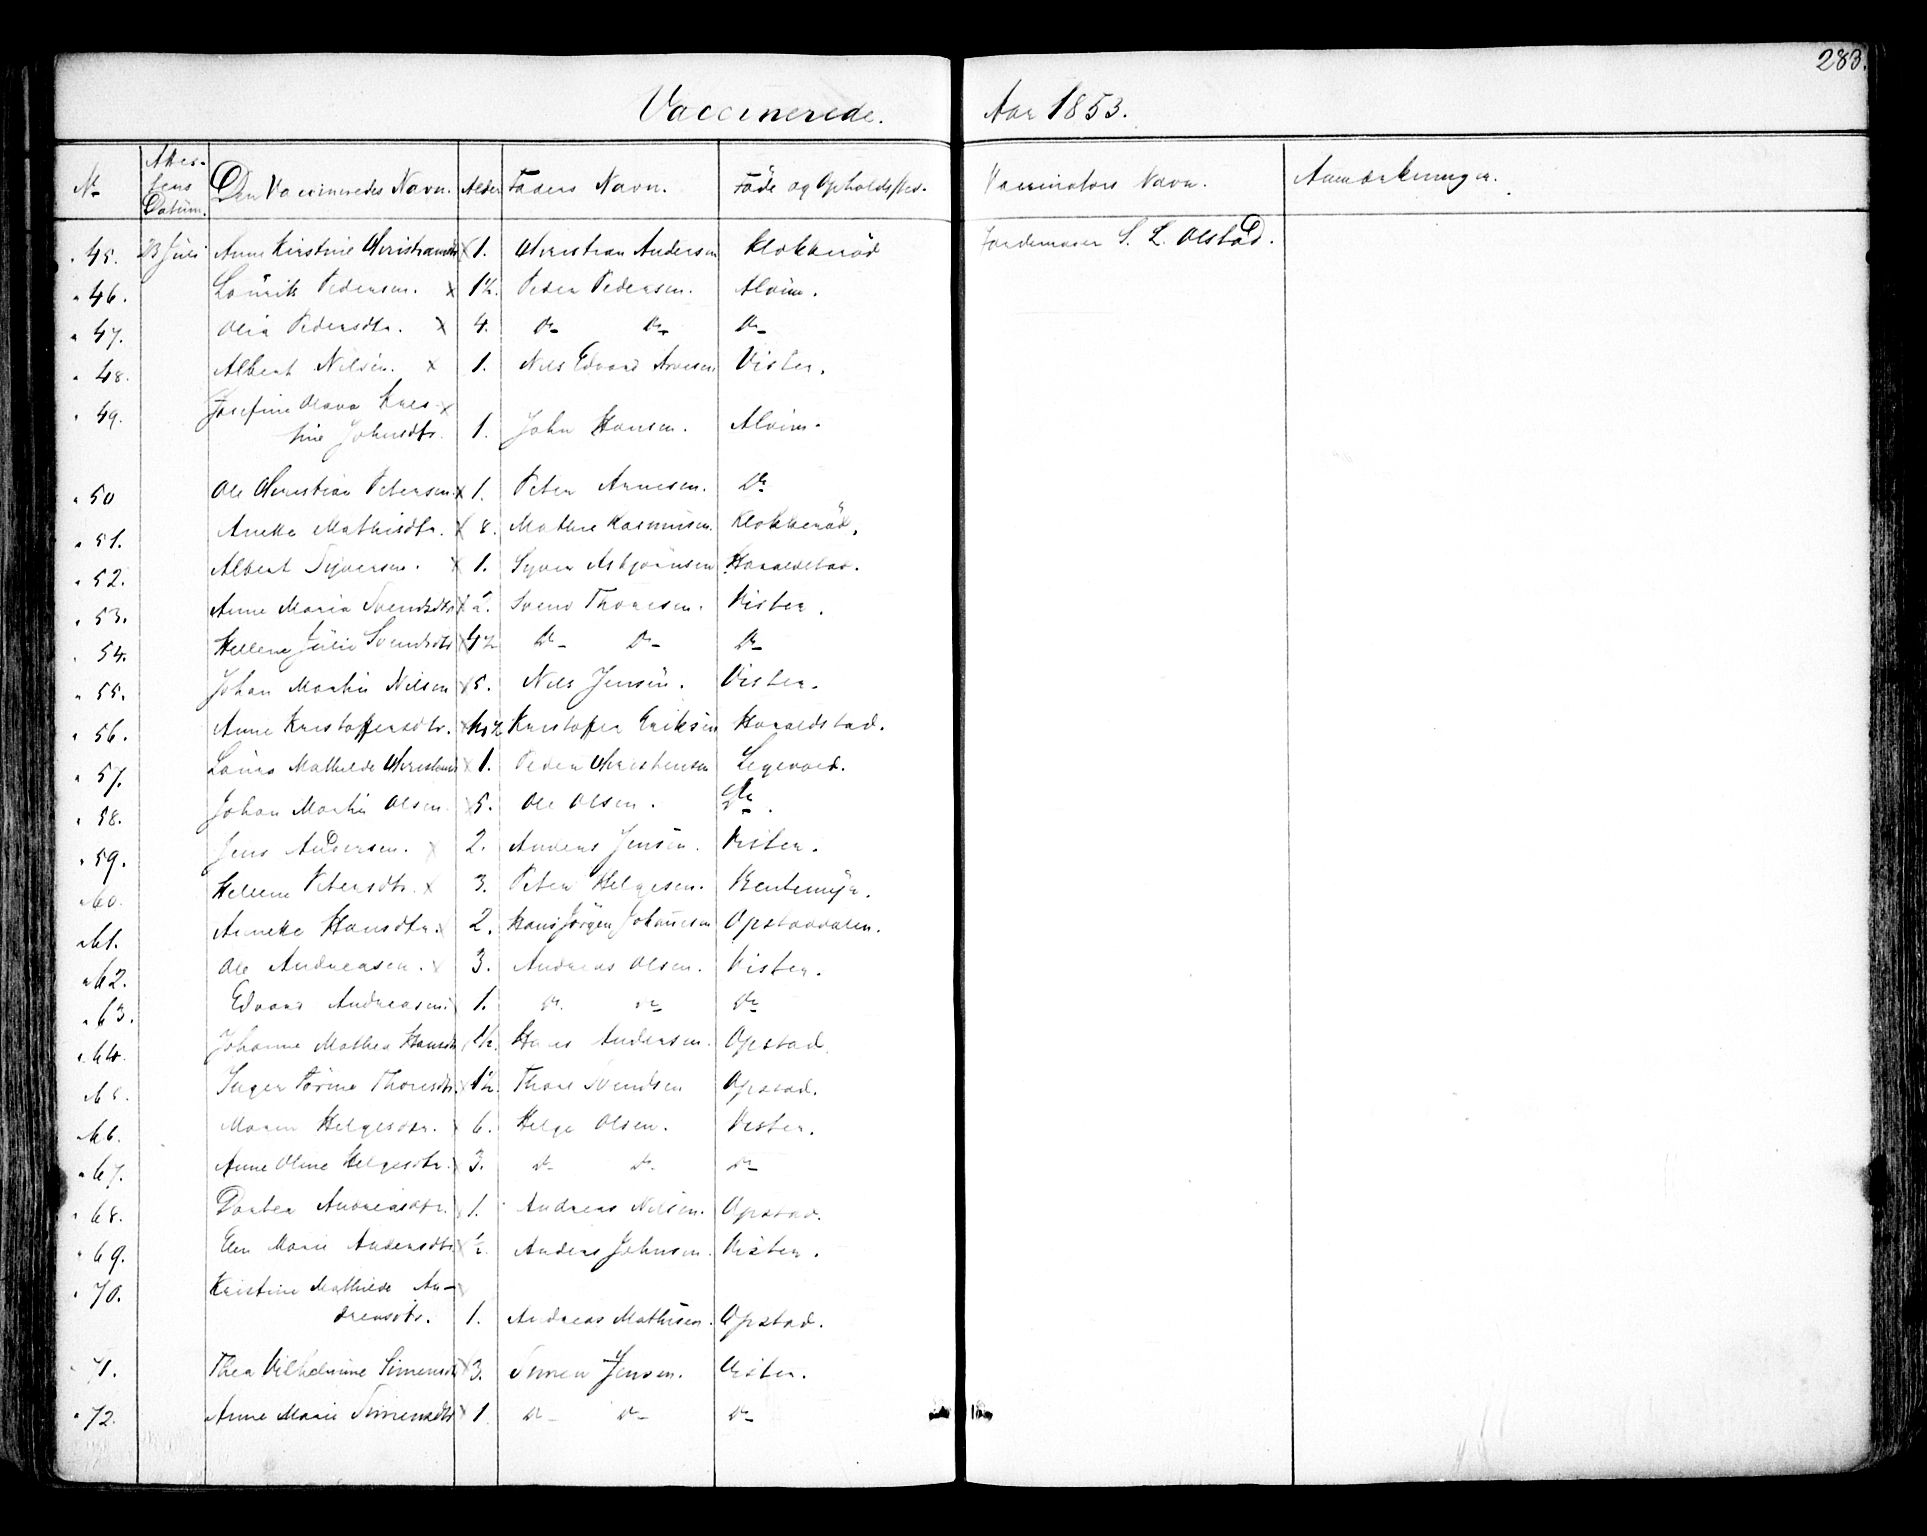 283.
Vaccinerede. Aar 1853.
No Attestens Datum. Den Vaccineredes Navn. Alder Faders Navn. Föde og Opholdssted. Vaccinators Navn. Anmærkninger.
45. 23 Juli Anne Kirstine Christiansdtr x 1. Christian Andersen Klokkeröd Jordemoer S. L. Olstad.
46. Laurits Pedersen. x 1½. Peder Pedersen. Alvim.
47. Olia Pedersdtr. x 4. Do Do Do
48. Albert Nilsen. x 1. Nils Edvard Arvesen Vister.
49. Josefine Olava Kris- x
tine Johnsdtr. 1. John Hansen. Alvim.
50 Ole Christian Petersen. x 1. Peter Arnesen. Do
51. Aneke Mathisdtr. x 8. Mathis Rasmusen. Klokkeröd.
52. Albert Syversen. x 1. Syver Asbjörnsen Haraldstad.
53. Anne Maria Svendsdtr x ½. Svend Thoresen. Vister.
54. Hellene Julie Svendsdtr x 4½ Do Do Do
55. Johan Martin Nilsen x 5. Nils Jensen. Vister.
56. Anne Kristoffersdtr. x Kristoffer Eriksen Haraldstad.
57. Mathilde x 1. Peder Christensen
58. Johan Martin Olsen. x 5. Ole Olsen. Do.
59. Jens Andersen. x 2. Anders Jensen. Vister.
60. Hellene Petersdtr. x 3. Peter Helgesen.
61. Anneke Hansdtr. x 2. Hans Jörgen Johannesen Opstaddalen.
62. Ole Andreasen. x 3. Andreas Olsen. Vister.
63. Edvard Andreasen. 1. Do Do Do
64. Johanne Mathea Hansdtr 1½. Hans Andersen. Opstad.
65. Inger Thoresdtr. x 1½. Thore Svendsen Opstad.
66. Maren Helgesdtr. x 6. Helge Olsen. Vister.
67. Anne Oline Helgesdtr. x 3. Do Do Do
68. Dortea Andreasdtr. x 1. Andreas Nilsen. Opstad.
69. Elen Marie Andersdtr x ½. Anders Johnsen. Vister.
70. Kristine Mathilde An- x
dreasdtr. 1. Andreas Mathisen. Opstad.
71. Thea Vilhelmine Simensdtr x 3. Simen Jensen. Vister.
72. Anne Marie Simensdtr x 1. Do Do Do